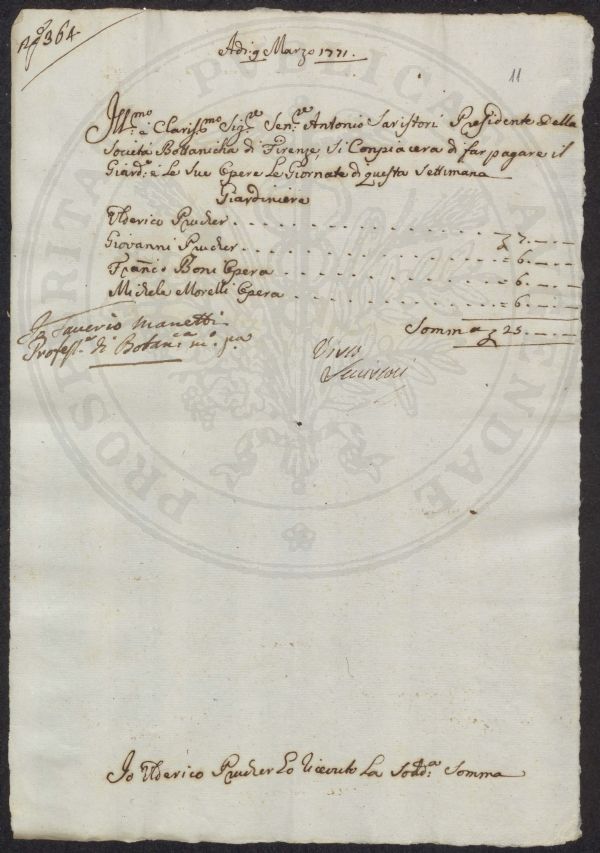 N.º 364
Adi. 9 Marzo 1771.
11
Ill.mo e Claris.mo Sig.re Sen.re Antonio Saristori Presidente della
Società Bottanicha di Firenze, Si Conpiacera di far pagare il
Giard.e e Le Sue Opere Le Giornate di questa Settimana
Giardiniere
Ulderico Prucher . . . . . . . . . . £ 7. — . —
Giovanni Prucher . . . . . . . . . . = 6. — . —
Fran.co Boni Opera . . . . . . . . . . = 6. — . —
Michele Morelli Opera . . . . . . . . . . = 6. — . —
Somma £ 25. — . —
Io Saverio Manetti
Profess.re di Botan.ca m.o p.a
Visto
Io Ulderico Prucher Lo ricevuto La Sodd.a Somma
PROSPERITATI PUBLICAE AUGENDAE